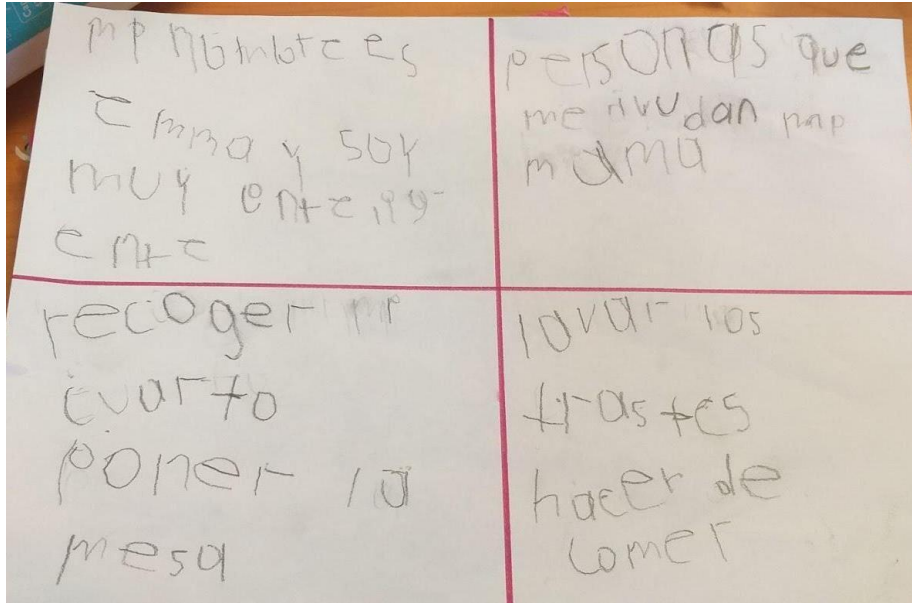 mp nombre es
Emma y soy
muy entelig-
ente
personas que
me ayudan mp
mama
recoger mp
cuarto
poner la
mesa
lavar los
trastes
hacer de
comer